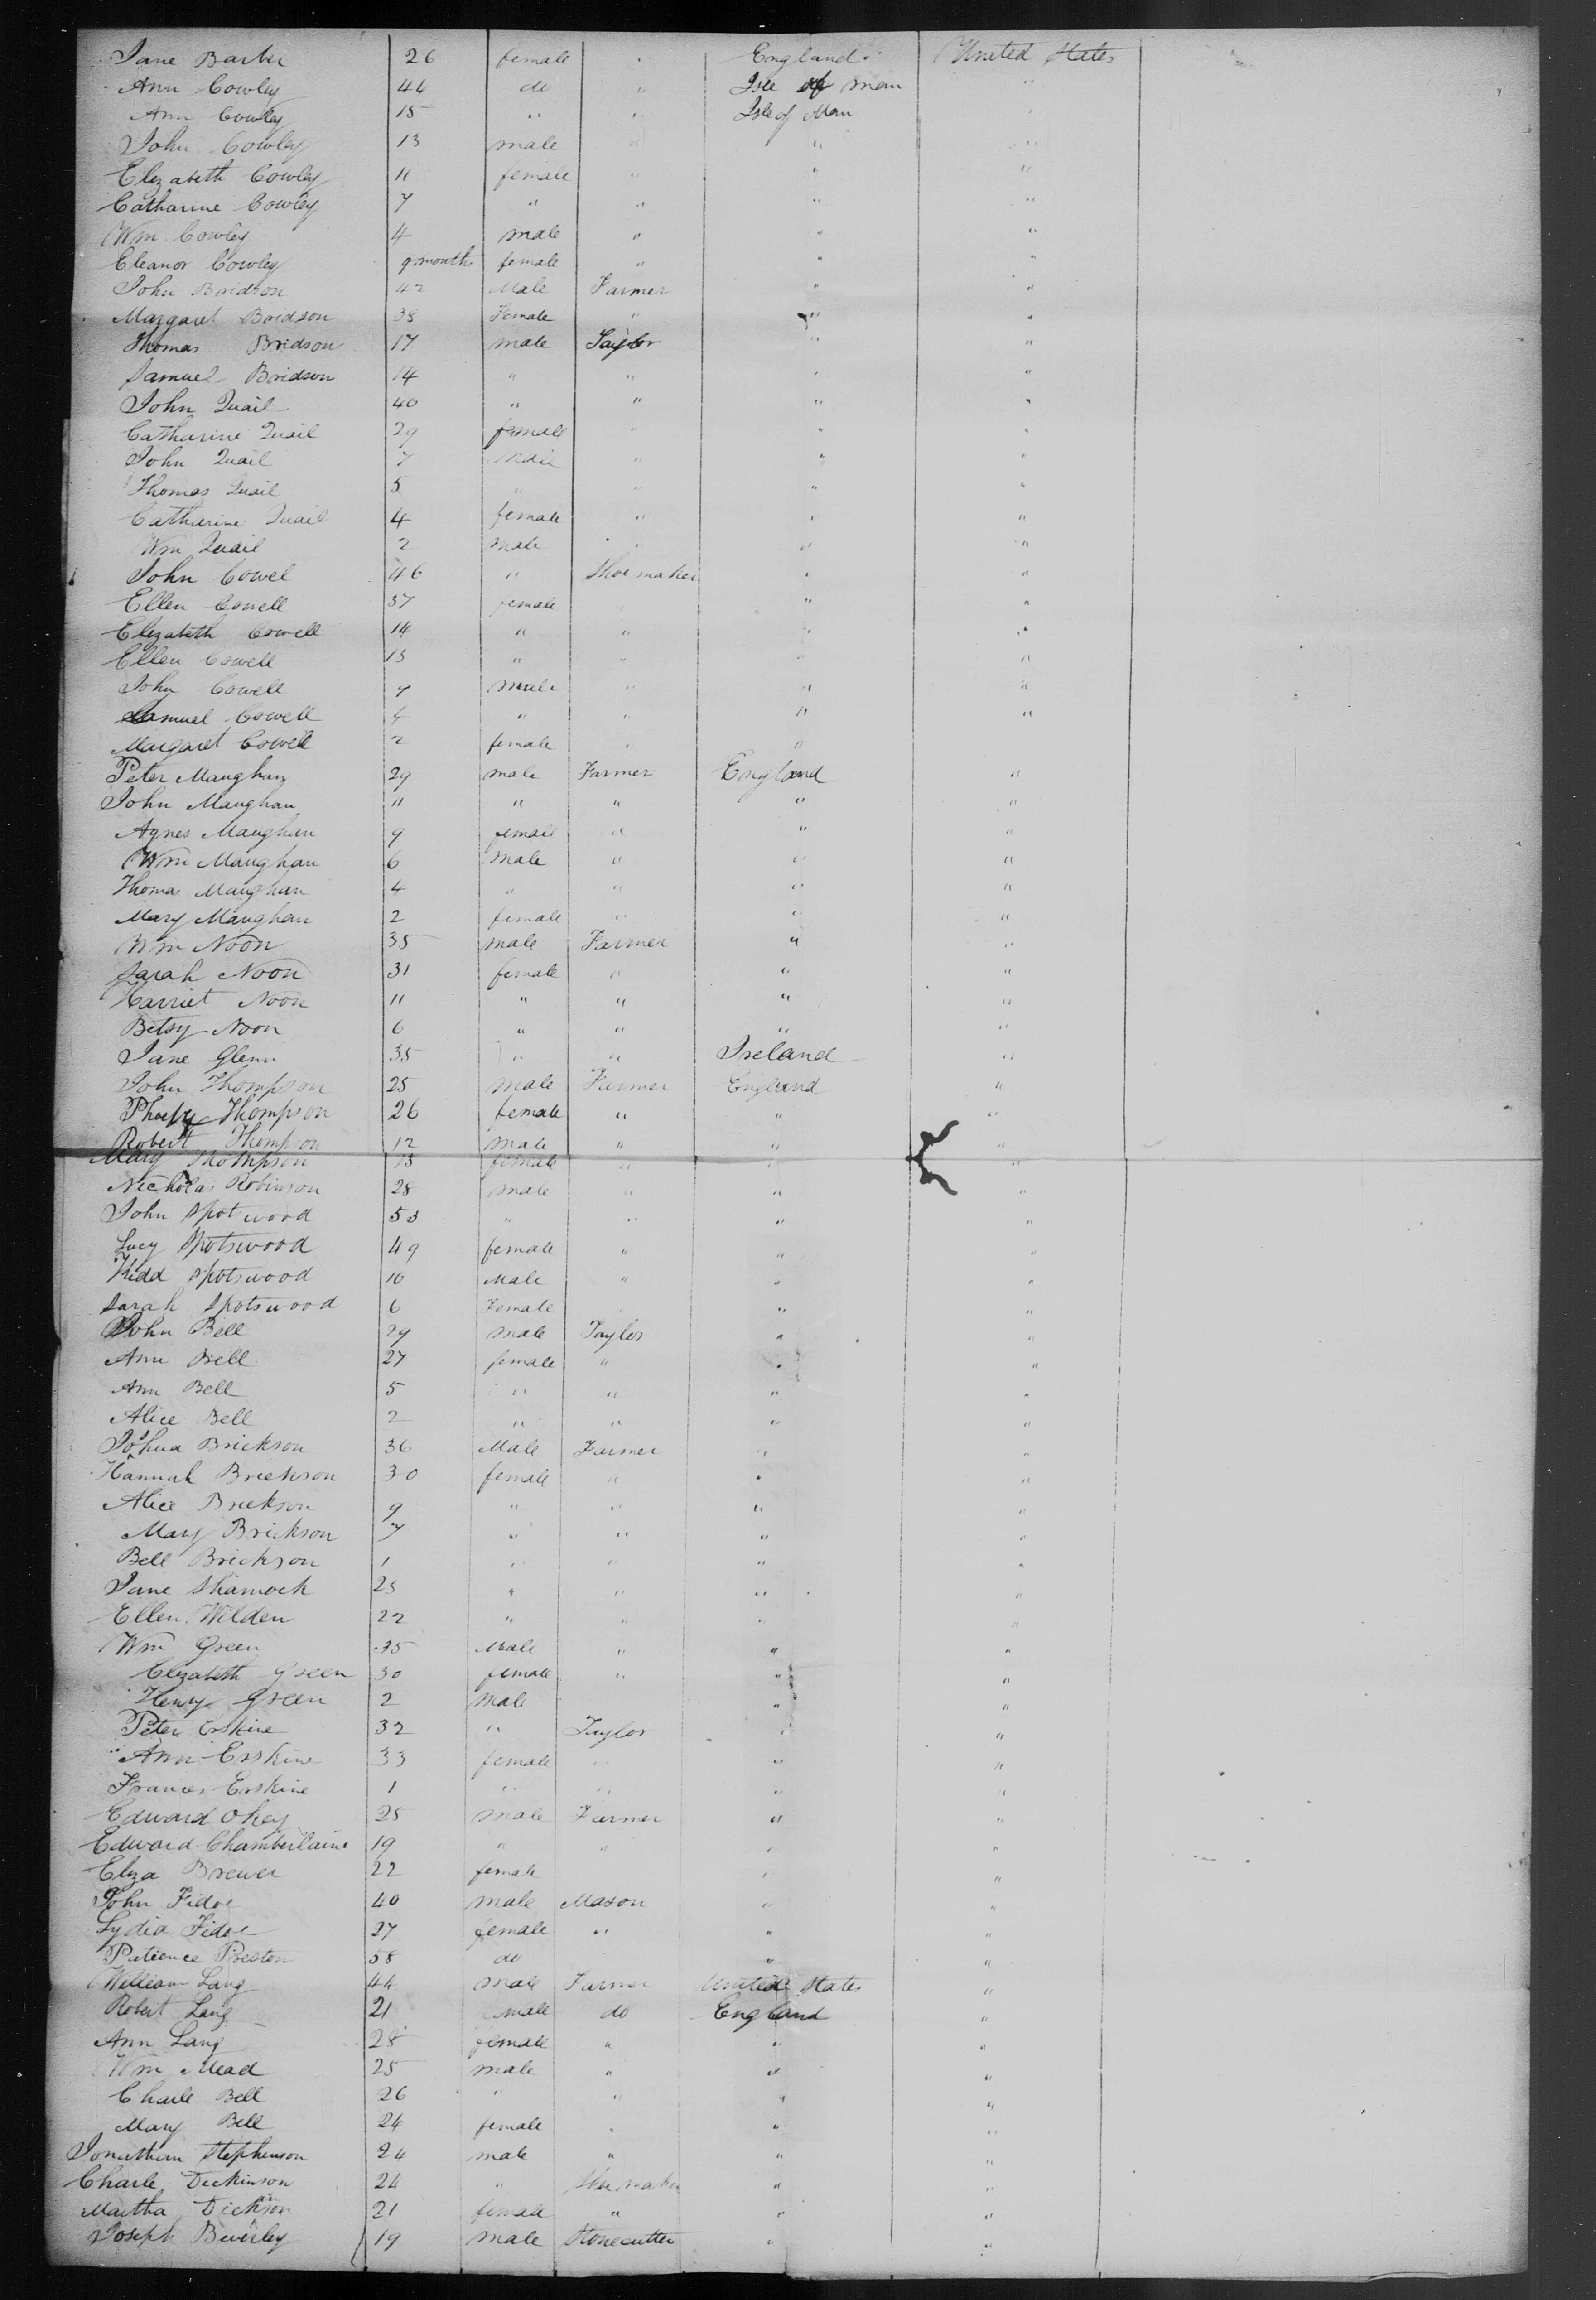 Jane Barber 26 female " England United States
Ann Cowley 44 do " Isle of man "
Ann Cowley 15 " " Isle of Man "
John Cowley 13 male " " "
Elizabeth Cowley 11 female " " "
Catharine Cowley 7 " " " "
Wm Cowley 4 male " " "
Eleanor Cowley 9 month female " " "
John Bridson 42 Male Farmer " "
Margaret Bridson 38 Female " " "
Thomas Bridson 17 male Taylor " "
Samuel Bridson 14 " " " "
John Quail 40 " " " "
Catharine Quail 29 female " " "
John Quail 7 male " " "
Thomas Quail 5 " " " "
Catharine Quail 4 female " " "
Wm Quail 2 male " " "
John Cowel 46 " Shoemaker " "
Ellen Cowell 37 female " " "
Elizabeth Cowell 14 " " " "
Ellen Cowell 13 " " " "
John Cowell 9 male " " "
Samuel Cowell 4 " " " "
Margaret Cowell 2 female " "
Peter Maughan 29 male Farmer England "
John Maughan 11 " " " "
Agnes Maughan 9 female " " "
Wm Maughan 6 male " " "
Thomas Maughan 4 " " " "
Mary Maughan 2 female " " "
Wm Noon 35 male Farmer " "
Sarah Noon 31 female " " "
Harriet Noon 11 " " " "
Betsy Noon 6 " " " "
Jane Glenn 35 " " Ireland "
John Thompson 25 male Farmer England "
Phoeby Thompson 26 female " " "
Robert Thompson 12 male " " "
Mary Thompson 13 female " " "
Nicholas Robinson 28 male " " "
John Spotswood 53 " " " "
Lucy Spotswood 49 female " " "
Kidd Spotswood 10 Male " " "
Sarah Spotswood 6 Female " "
John Bell 29 male Taylor " "
Ann Bell 27 female " " "
Ann Bell 5 " " " "
Alice Bell 2 " " " "
Joshua Brickson 36 Male Farmer " "
Hannah Brickson 30 female " " "
Alice Brickson 9 " " " "
Mary Brickson 7 " " " "
Bell Brickson 1 " " " "
Jane Shamock 25 " " " "
Ellen Wilden 22 " " " "
Wm Green 35 Male " " "
Elizabeth Green 30 female " " "
Henry Green 2 male " "
Peter Erskine 32 " Taylor " "
Ann Erskine 33 female " " "
Frances Erskine 1 " " " "
Edward Okey 25 male Farmer " "
Edward Chamberlaine 19 " " " "
Eliza Brewer 22 female " "
John Fidoe 40 male Mason " "
Lydia Fidoe 27 female " " "
Patience Preston 58 do " "
William Lang 44 male Farmer United States "
Robert Lang 21 male do England "
Ann Lang 28 female " " "
Wm Mead 25 male " " "
Charle Bell 26 " " " "
Mary Bell 24 female " " "
Jonathan Stephenson 24 male " " "
Charle Dickinson 24 " Shoemaker " "
Martha Dickinson 21 female " " "
Joseph Beverley 19 male Stonecutter " "